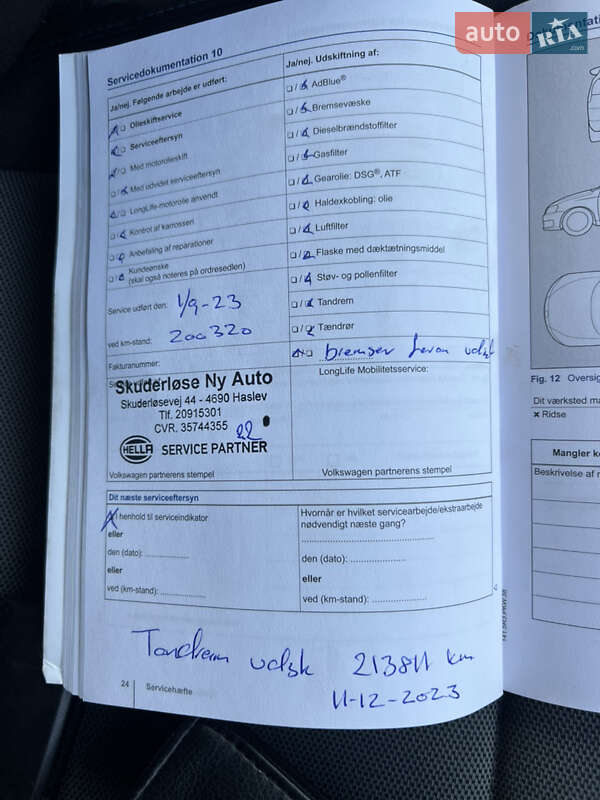 auto RIA .com
Servicedokumentation 10
Ja/nej. Følgende arbejde er udført:
Olieskiftservice
Serviceeftersyn
Med motorolieskift
Med udvidet serviceeftersyn
LongLife-motorolie anvendt
Kontrol af karrosseri
Anbefaling af reparationer
Kundeønske
(skal også noteres på ordresedlen)
Service udført den: 1/9-23
ved km-stand: 200320
Fakturanummer:
Skuderløse Ny Auto
Skuderløsevej 44 - 4690 Haslev
Tlf. 20915301
CVR. 35744355
22
HELLA SERVICE PARTNER
Volkswagen partnerens stempel
Ja/nej. Udskiftning af:
AdBlue®
Bremsevæske
Dieselbrændstoffilter
Gasfilter
Gearolie: DSG®, ATF
Haldexkobling: olie
Luftfilter
Flaske med dæktætningsmiddel
Støv- og pollenfilter
Tandrem
Tændrør
bremser foran udsk
LongLife Mobilitetsservice:
Volkswagen partnerens stempel
Dit næste serviceeftersyn
I henhold til serviceindikator
eller
den (dato):
eller
ved (km-stand):
Hvornår er hvilket servicearbejde/ekstraarbejde
nødvendigt næste gang?
den (dato):
eller
ved (km-stand):
Tandrem udsk 213811 km
11-12-2023
24 Servicehæfte
Fig. 12 Oversig
Dit værksted ma
× Ridse
Mangler k
Beskrivelse af